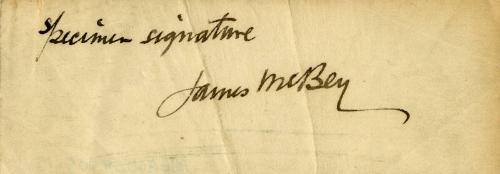 specimen signature
James McBey